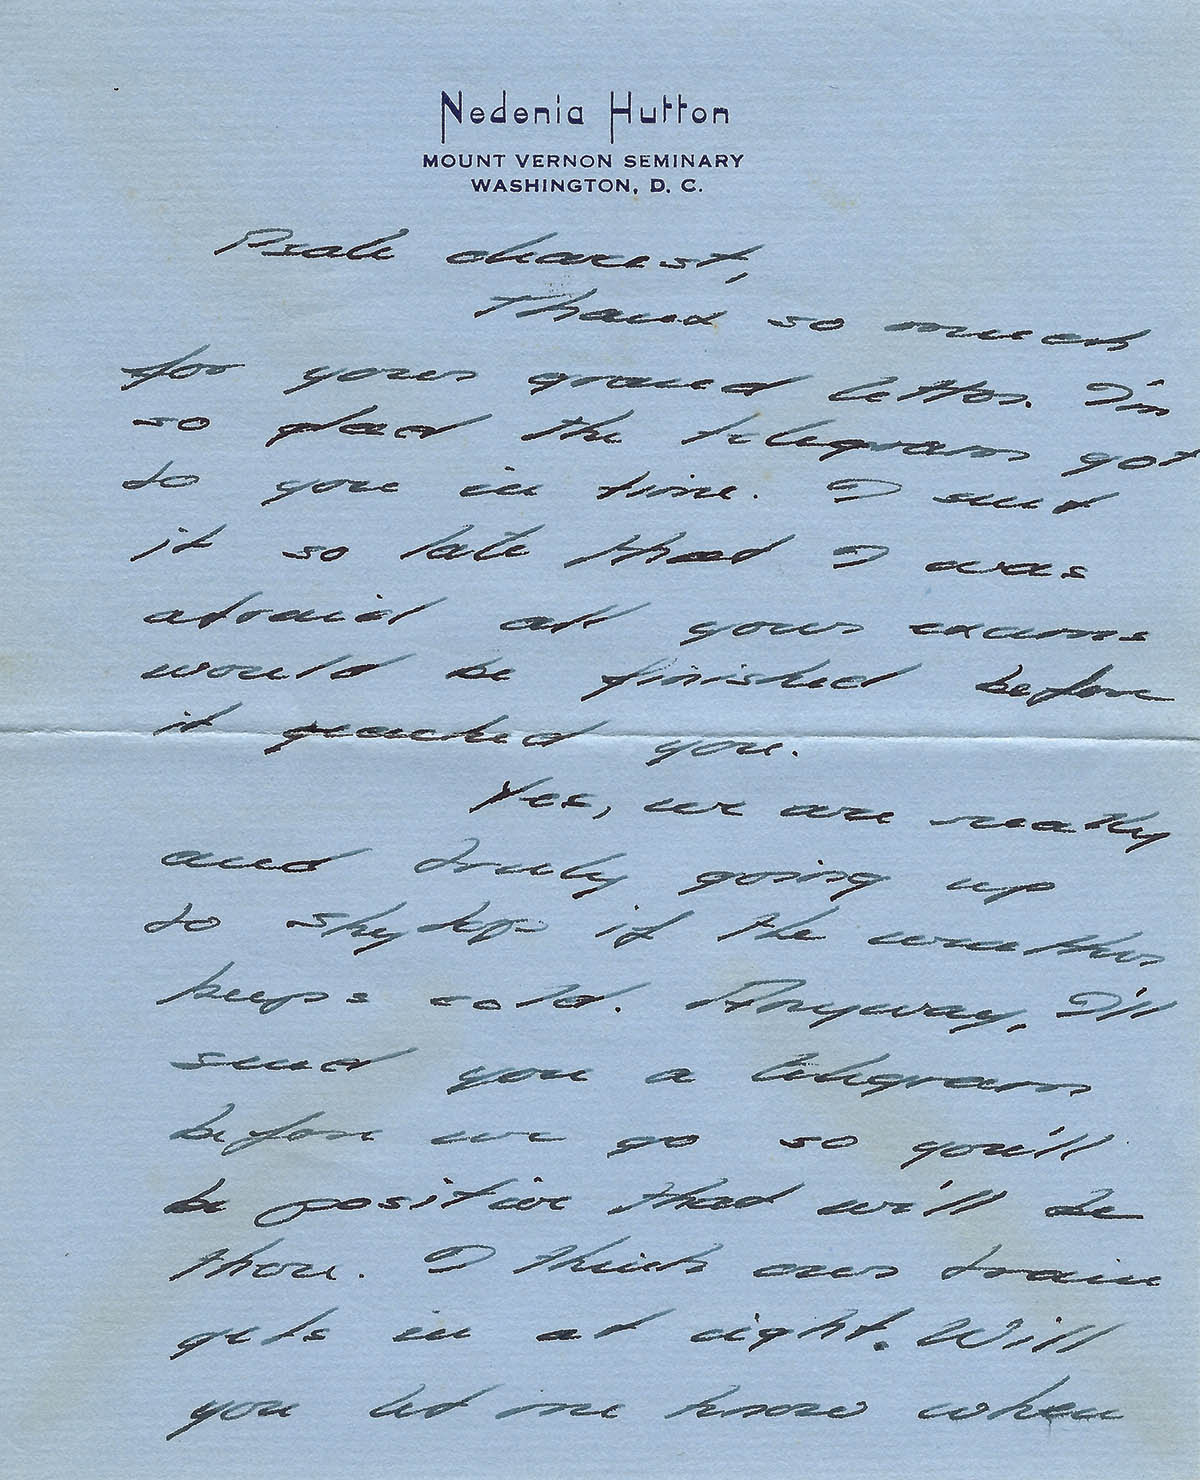 Nedenia Hutton
MOUNT VERNON SEMINARY
WASHINGTON, D. C.
dearest,
Thanks so much
for your grand letter. I'm
so glad the telegram got
to you in time. I sent
it so late that I was
afraid all your exams
would be finished before
it reached you.
Yes, we are really
and truly going up
to skytop if the weather
keeps cold. Anyway, I'll
send you a telegram
before we go so you'll
be positive that we'll be
there. I think our train
gets in at eight. Will
you let me know when